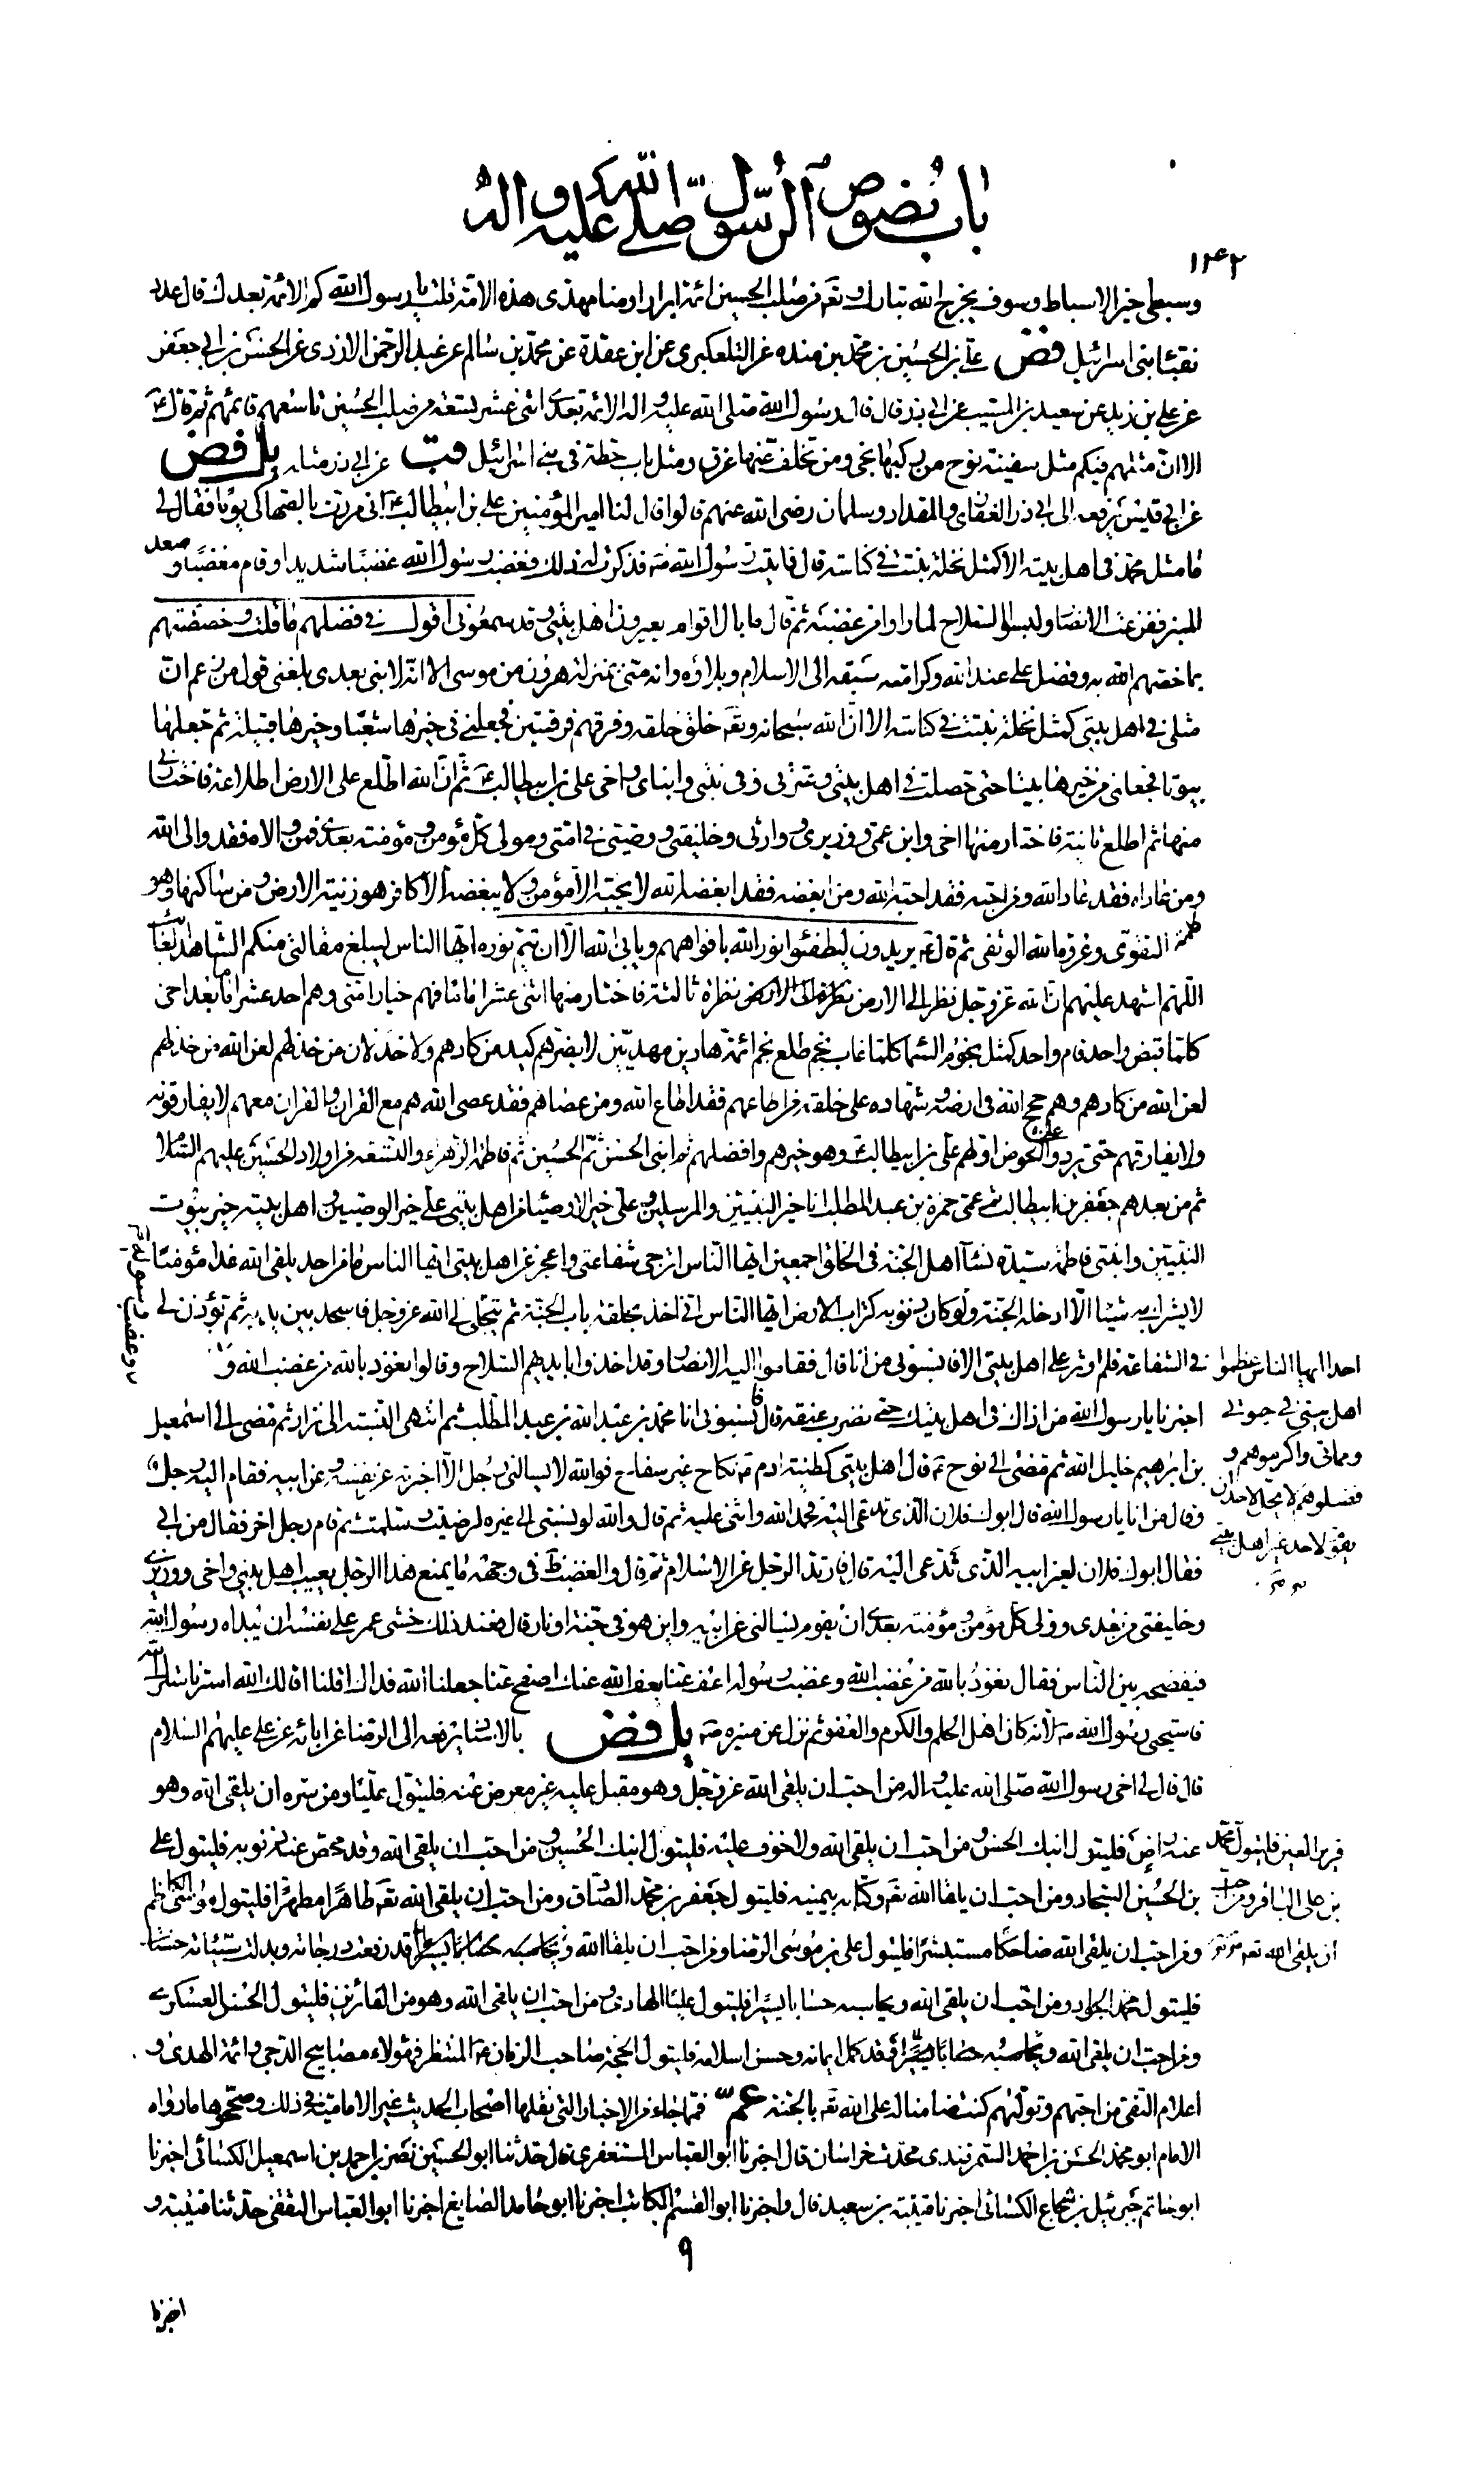 باب نصوص الرسول صلى الله عليه و اله
١٤٢
وسبطي خير الاسباط وسوف يخرج الله تبارك وتعه من صلب الحسين ائمة ابرارا ومنا مهدي هذه الامة قلت يا رسول الله كم الائمة بعدك قال عدد
نقباء بني اسرائيل فض علي بن الحسين بن محمد بن منده عن التلعكبري عن ابن عقدة عن محمد بن سالم عن عبد الرحمن الازدي عن الحسن بن ابي جعفر
عن علي بن زيد عن سعيد بن المسيب عن ابي ذر قال قال رسول الله صلى الله عليه واله الائمة بعدي اثنى عشر تسعة من صلب الحسين تاسعهم قائمهم ثم قال ع
الا ان مثلهم فيكم مثل سفينة نوح من ركبها نجى ومن تخلف عنها غرق ومثل باب حطة في بني اسرائيل قب عن ابي ذر مثله يل فض
عن ابي قيس يرفعه الى ابي ذر الغفاري والمقداد وسلمان رضي الله عنهم قالوا قال لنا امير المؤمنين علي بن ابيطالب ع اني مررت بالصهاكي يوما فقال لي
ما مثل محمد في اهل بيته الا كمثل نخلة نبتت في كناسة قال فاتيت رسول الله ص فذكرت له ذلك فغضب رسول الله غضبا شديدا وقام مغضبا وصعد
المنبر ففزعت الانصار ولبسوا السلاح لما راوا من غضبه ثم قال ما بال اقوام يعيرون اهل بيتي وقد سمعوني اقول في فضلهم ما قلت وخصصتهم
بما خصهم الله به وفضل علي عند الله وكرامته وسبقه الى الاسلام وبلاؤه وانه مني بمنزلة هرون من موسى الا انه لا نبي بعدي بلغني قول من زعم ان
مثلي في اهل بيتي كمثل نخلة نبتت في كناسة الا ان الله سبحانه وتعه خلق خلقه وفرقهم فرقتين فجعلني في خيرها شعبا وخيرها قبيلة ثم جعلها
بيوتا فجعلني من خيرها بيتا حتى حصلت في اهل بيتي وعترتي وفي بنتي وابناي واخي علي بن ابيطالب ع ثم ان الله اطلع على الارض اطلاعة فاختارني
منها ثم اطلع ثانية فاختار منها اخي وابن عمي ووزيري ووارثي وخليفتي ووصيي في امتي ومولى كل مؤمن ومؤمنة بعدي فمن والاه فقد والى الله
ومن عاداه فقد عاد الله ومن احبه فقد احبه الله ومن ابغضه فقد ابغضه الله لا يحبه الا مؤمن ولا يبغضه الا كافر هو زينة الارض ومن ساكنها وهو
كلمة التقوى وعروة الله الوثقى ثم قال ع يريدون ليطفئوا نور الله بافواههم ويابى الله الا ان يتم نوره ايها الناس ليبلغ مقالتي منكم الشاهد الغائب
اللهم اشهد عليهم ان الله عز وجل نظر الى الارض نظرة ثالثة فاختار منها اثنى عشر اماما فهم خيار امتي وهم احد عشر اماما بعد اخي
كلما قبض واحد قام واحد كمثل نجوم السماء كلما غاب نجم طلع نجم ائمة هادين مهديين لا يضرهم كيد من كادهم ولا خذلان من خذلهم لعن الله من خذلهم
لعن الله من كادهم وهم حجج الله في ارضه وشهداه على خلقه من اطاعهم فقد اطاع الله ومن عصاهم فقد عصى الله هم مع القران والقران معهم لا يفارقونه
ولا يفارقهم حتى يردوا على الحوض اولهم علي بن ابيطالب ع وهو خيرهم وافضلهم ثم ابني الحسن ثم الحسين ثم فاطمة الزهراء والتسعة من اولاد الحسين عليهم السلام
ثم من بعدهم جعفر بن ابيطالب ثم عمي حمزة بن عبد المطلب انا خير النبيين والمرسلين وعلي خير الاوصياء من اهل بيتي علي خير الوصيين واهل بيته خير بيوت
النبيين وابنتي فاطمة سيدة نساء اهل الجنة في الخلق اجمعين ايها الناس اترجى شفاعتي واعجز عن اهل بيتي ايها الناس ما من احد يلقى الله غدا مؤمنا
لا يشرك به شيئا الا ادخله الجنة ولو كان ذنوبه كتراب الارض ايها الناس اني اخذ بحلقة باب الجنة ثم يتجلى لي الله عز وجل فاسجد بين يديه ثم يؤذن لي
في الشفاعة فلم اوثر على اهل بيتي الا فانسبوني من انا قال فقاموا اليه الانصار وقد اخذوا بايديهم السلاح وقالوا نعوذ بالله من غضب الله و
غضب رسوله
احدا ايها الناس عظموا
اهل بيتي في حيوتي
ومماتي واكرموهم و
فضلوهم لا يحل لاحد ان
يقوم لاحد غير اهل بيتي
اخبرنا يا رسول الله من اذاك في اهل بيتك حتى نضرب عنقه قال فانسبوني انا محمد بن عبد الله بن عبد المطلب ثم انتهى النسبة الى نزار ثم مضى الى اسمعيل
بن ابرهيم خليل الله ثم مضى الى نوح ثم قال اهل بيتي كطينة ادم ع نكاح غير سفاح فوالله لا يسالني رجل الا اخبرته عن نفسه وعن ابيه فقام اليه رجل
وقال من انا يا رسول الله قال ابوك فلان الذي تدعى اليه فحمد الله واثنى عليه ثم قال والله لو نسبتني الى غيره لرضيت وسلمت ثم قام رجل اخر فقال من ابي
فقال ابوك فلان لغير ابيه الذي تدعى اليه فارتد الرجل عن الاسلام ثم قال والغضب في وجهه ما يمنع هذا الرجل يعيب اهل بيتي واخي ووزيري
وخليفتي من بعدي وولي كل مؤمن ومؤمنة بعدي ان يقوم يسالني عن ابيه واين هو في جنة او نار قال فعند ذلك خشي عمر على نفسه ان يبداه رسول الله
فيفضحه بين الناس فقال نعوذ بالله من غضب الله وغضب رسوله اعف عنا يعف الله عنك اصفح عنا جعلنا الله فداك اقلنا اقالك الله استرنا سترك الله
فاستحيى رسول الله ص لانه كان اهل الحلم والكرم والعفو ثم نزل عن منبره ص يل فض بالاسناد يرفعه الى الرضا عن ابائه عن علي عليهم السلام
قال قال لي اخي رسول الله صلى الله عليه واله من احب ان يلقى الله عز وجل وهو مقبل عليه غير معرض عنه فليتول عليا ومن سره ان يلقى الله وهو
عنه راض فليتول ابنك الحسن ومن احب ان يلقى الله ولا خوف عليه فليتول ابنك الحسين ومن احب ان يلقى الله وقد محص عنه ذنوبه فليتول علي
بن الحسين السجاد ومن احب ان يلقى الله تعه وكتابه بيمينه فليتول جعفر بن محمد الصادق ومن احب ان يلقى الله تعه طاهرا مطهرا فليتول موسى الكاظم
قرير العين فليتول محمد
بن علي الباقر ومن احب
ان يلقى الله تعه
ومن احب ان يلقى الله ضاحكا مستبشرا فليتول علي بن موسى الرضا ومن احب ان يلقى الله وقد رفعت درجاته وبدلت سيئاته حسنات
فليتول محمد الجواد ومن احب ان يلقى الله ويحاسبه حسابا يسيرا فليتول عليا الهادي ومن احب ان يلقى الله وهو من الفائزين فليتول الحسن العسكري
ومن احب ان يلقى الله وقد كمل ايمانه وحسن اسلامه فليتول الحجة صاحب الزمان ع المنتظر فهؤلاء مصابيح الدجى وائمة الهدى و
اعلام التقى من احبهم وتولاهم كنت ضامنا له على الله تعه بالجنة عم فمما جاء من الاخبار التي نقلها اصحاب الحديث غير الامامية في ذلك وصححوها ما رواه
الامام ابو محمد الحسن بن احمد السمرقندي محدث خراسان قال اخبرنا ابو العباس المستغفري قال حدثنا ابو الحسين نصر بن احمد بن اسمعيل الكسائي اخبرنا
ابو حاتم جبرئيل بن شجاع الكسائي اخبرنا قتيبة بن سعيد قال واخبرنا ابو القسم الكاتب اخبرنا ابو حامد الصايغ اخبرنا ابو العباس الثقفي حدثنا قتيبة و
٩
اخبرنا